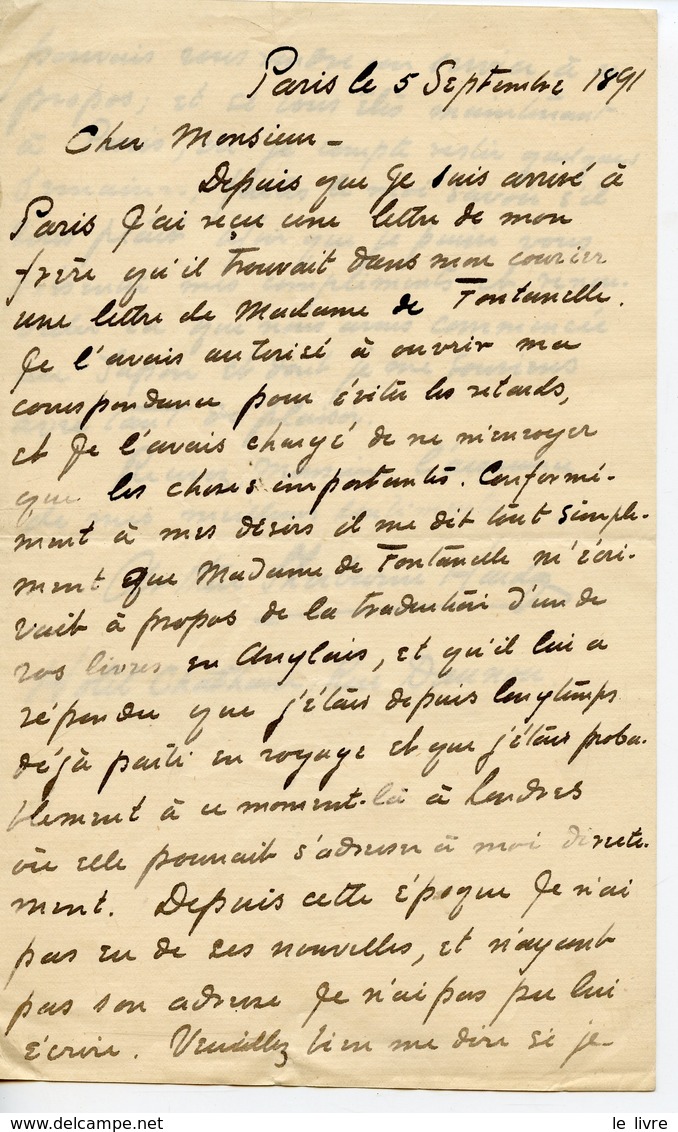 Paris le 5 Septembre 1891
Cher Monsieur -
Depuis que je suis arrivé à
Paris j'ai reçu une lettre de mon
frère qu'il trouvait dans mon courier
une lettre de Madame de Fontanelle.
Je l'avais autorisé à ouvrir ma
correspondance pour éviter les retards,
et je l'avais chargé de ne m'envoyer
que les choses importantes. Conformé-
ment à mes désirs il me dit tout simple-
ment que Madame de Fontanelle m'écri-
vait à propos de la traduction d'un de
vos livres en Anglais, et qu'il lui a
répondu que j'étais depuis longtemps
déjà parti en voyage et que j'étais proba-
blement à ce moment-là à Londres
où elle pourrait s'adresser à moi directe-
ment. Depuis cette époque je n'ai
pas eu de ses nouvelles, et n'ayant
pas son adresse je n'ai pas pu lui
écrire. Veuillez bien me dire si je
le livre